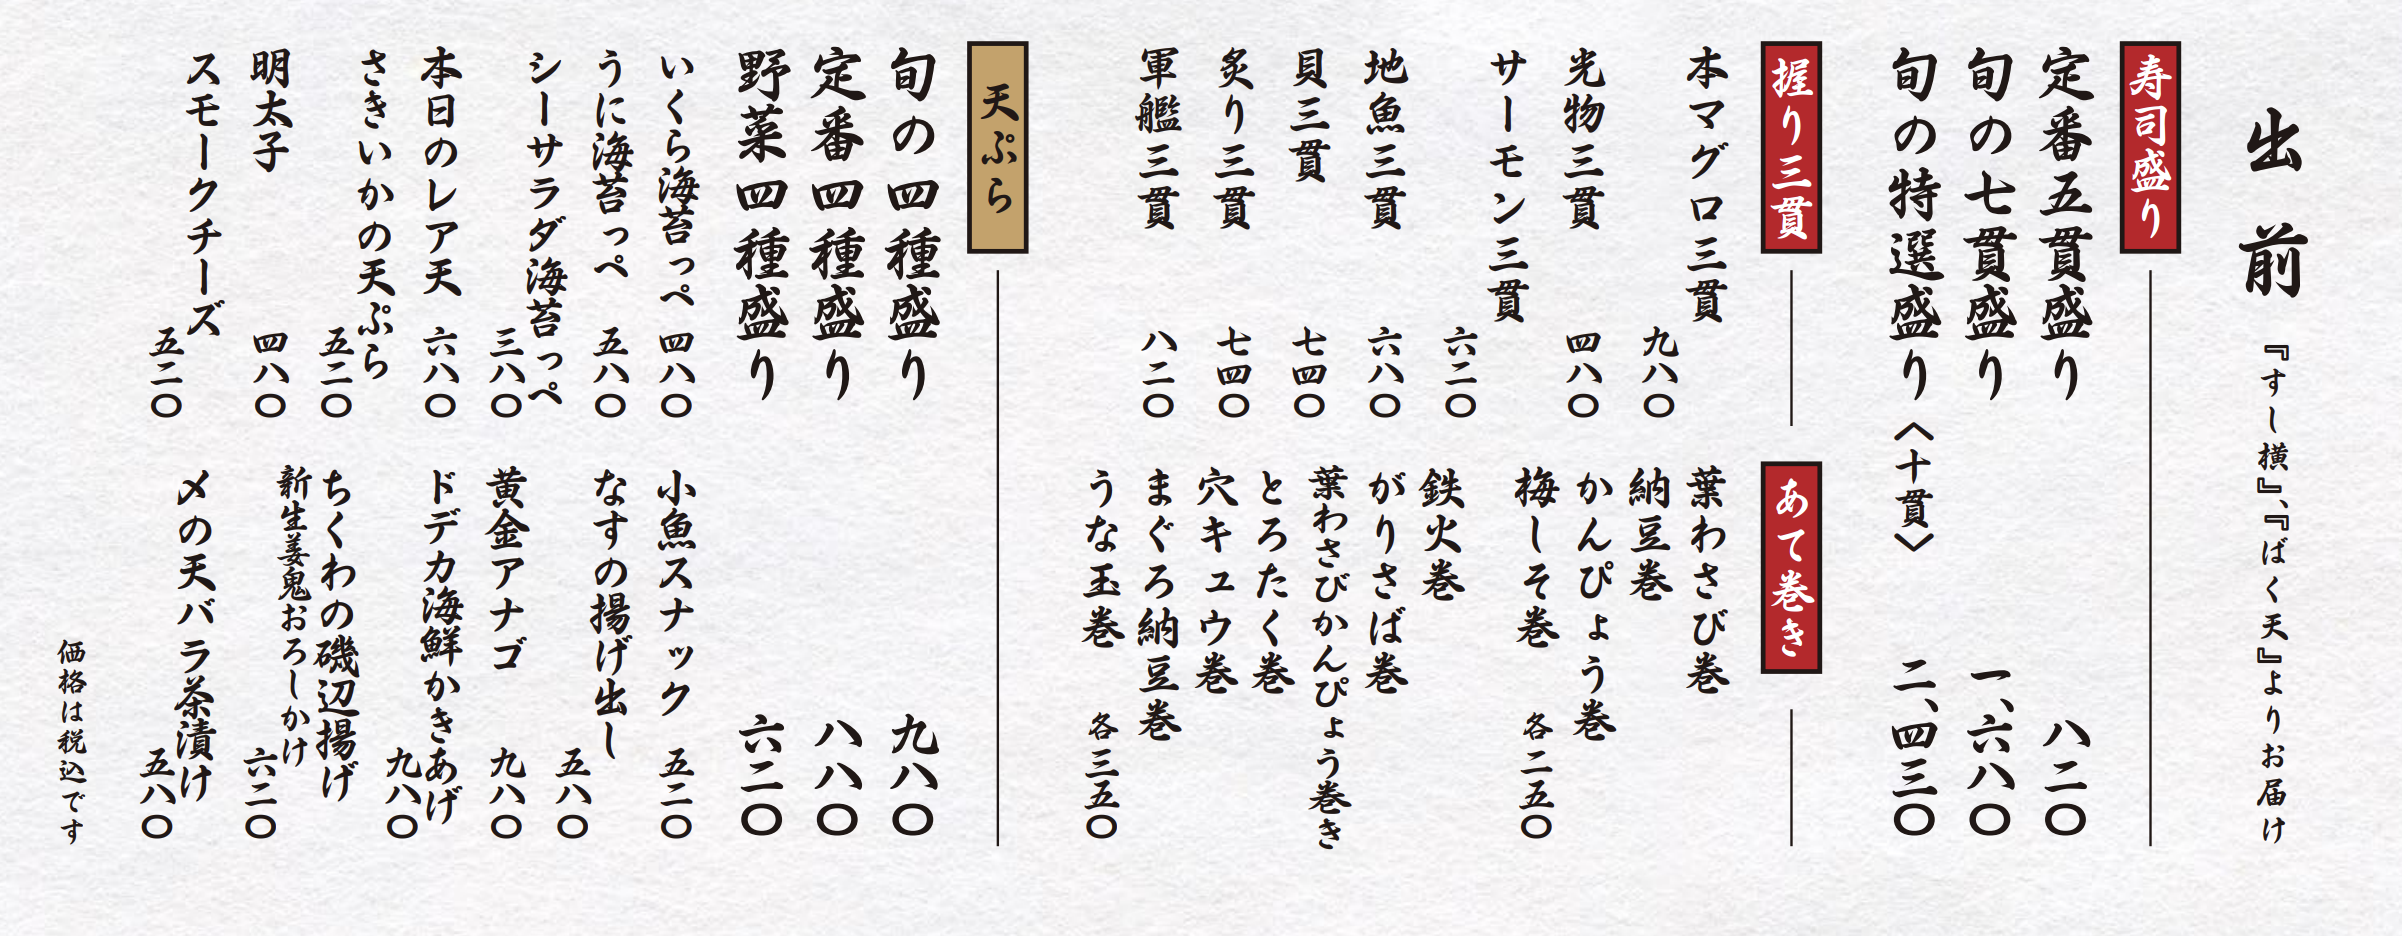 出前
『すし横』、『ばく天』よりお届け
寿司盛り
定番五貫盛り 八二〇
旬の七貫盛り 一、六八〇
旬の特選盛り〈十貫〉 二、四三〇
握り三貫
本マグロ三貫 九八〇
光物三貫 四八〇
サーモン三貫 六二〇
地魚三貫 六八〇
貝三貫 七四〇
炙り三貫 七四〇
軍艦三貫 八二〇
あて巻き
葉わさび巻
納豆巻
かんぴょう巻
梅しそ巻 各二五〇
鉄火巻
がりさば巻
葉わさびかんぴょう巻き
とろたく巻
穴キュウ巻
まぐろ納豆巻
うな玉巻 各三五〇
天ぷら
旬の四種盛り 九八〇
定番四種盛り 八八〇
野菜四種盛り 六二〇
いくら海苔っぺ 四八〇
うに海苔っぺ 五八〇
シーサラダ海苔っぺ 三八〇
本日のレア天 六八〇
さきいかの天ぷら 五二〇
明太子 四八〇
スモークチーズ 五二〇
小魚スナック 五二〇
なすの揚げ出し 五八〇
黄金アナゴ 九八〇
ドデカ海鮮かきあげ 九八〇
ちくわの磯辺揚げ
新生姜鬼おろしかけ 六二〇
〆の天バラ茶漬け 五八〇
価格は税込です